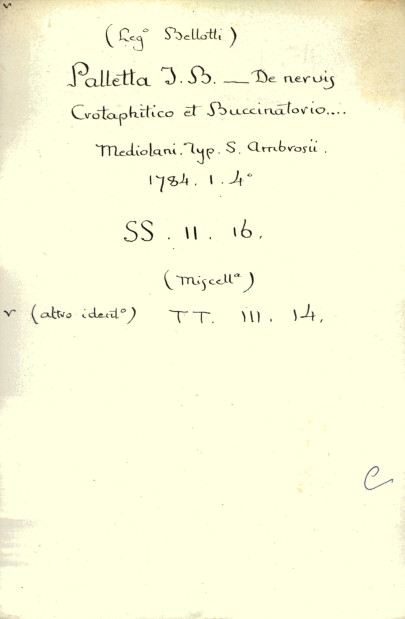 v
(Leg° Bellotti)
Palletta J. B. — De nervis
Crotaphitico et Buccinatorio....
Mediolani. Typ. S. Ambrosii.
1784. 1. 4°
SS. 11. 16.
(Miscellª)
v (altro ident°) TT. 111. 14.
C